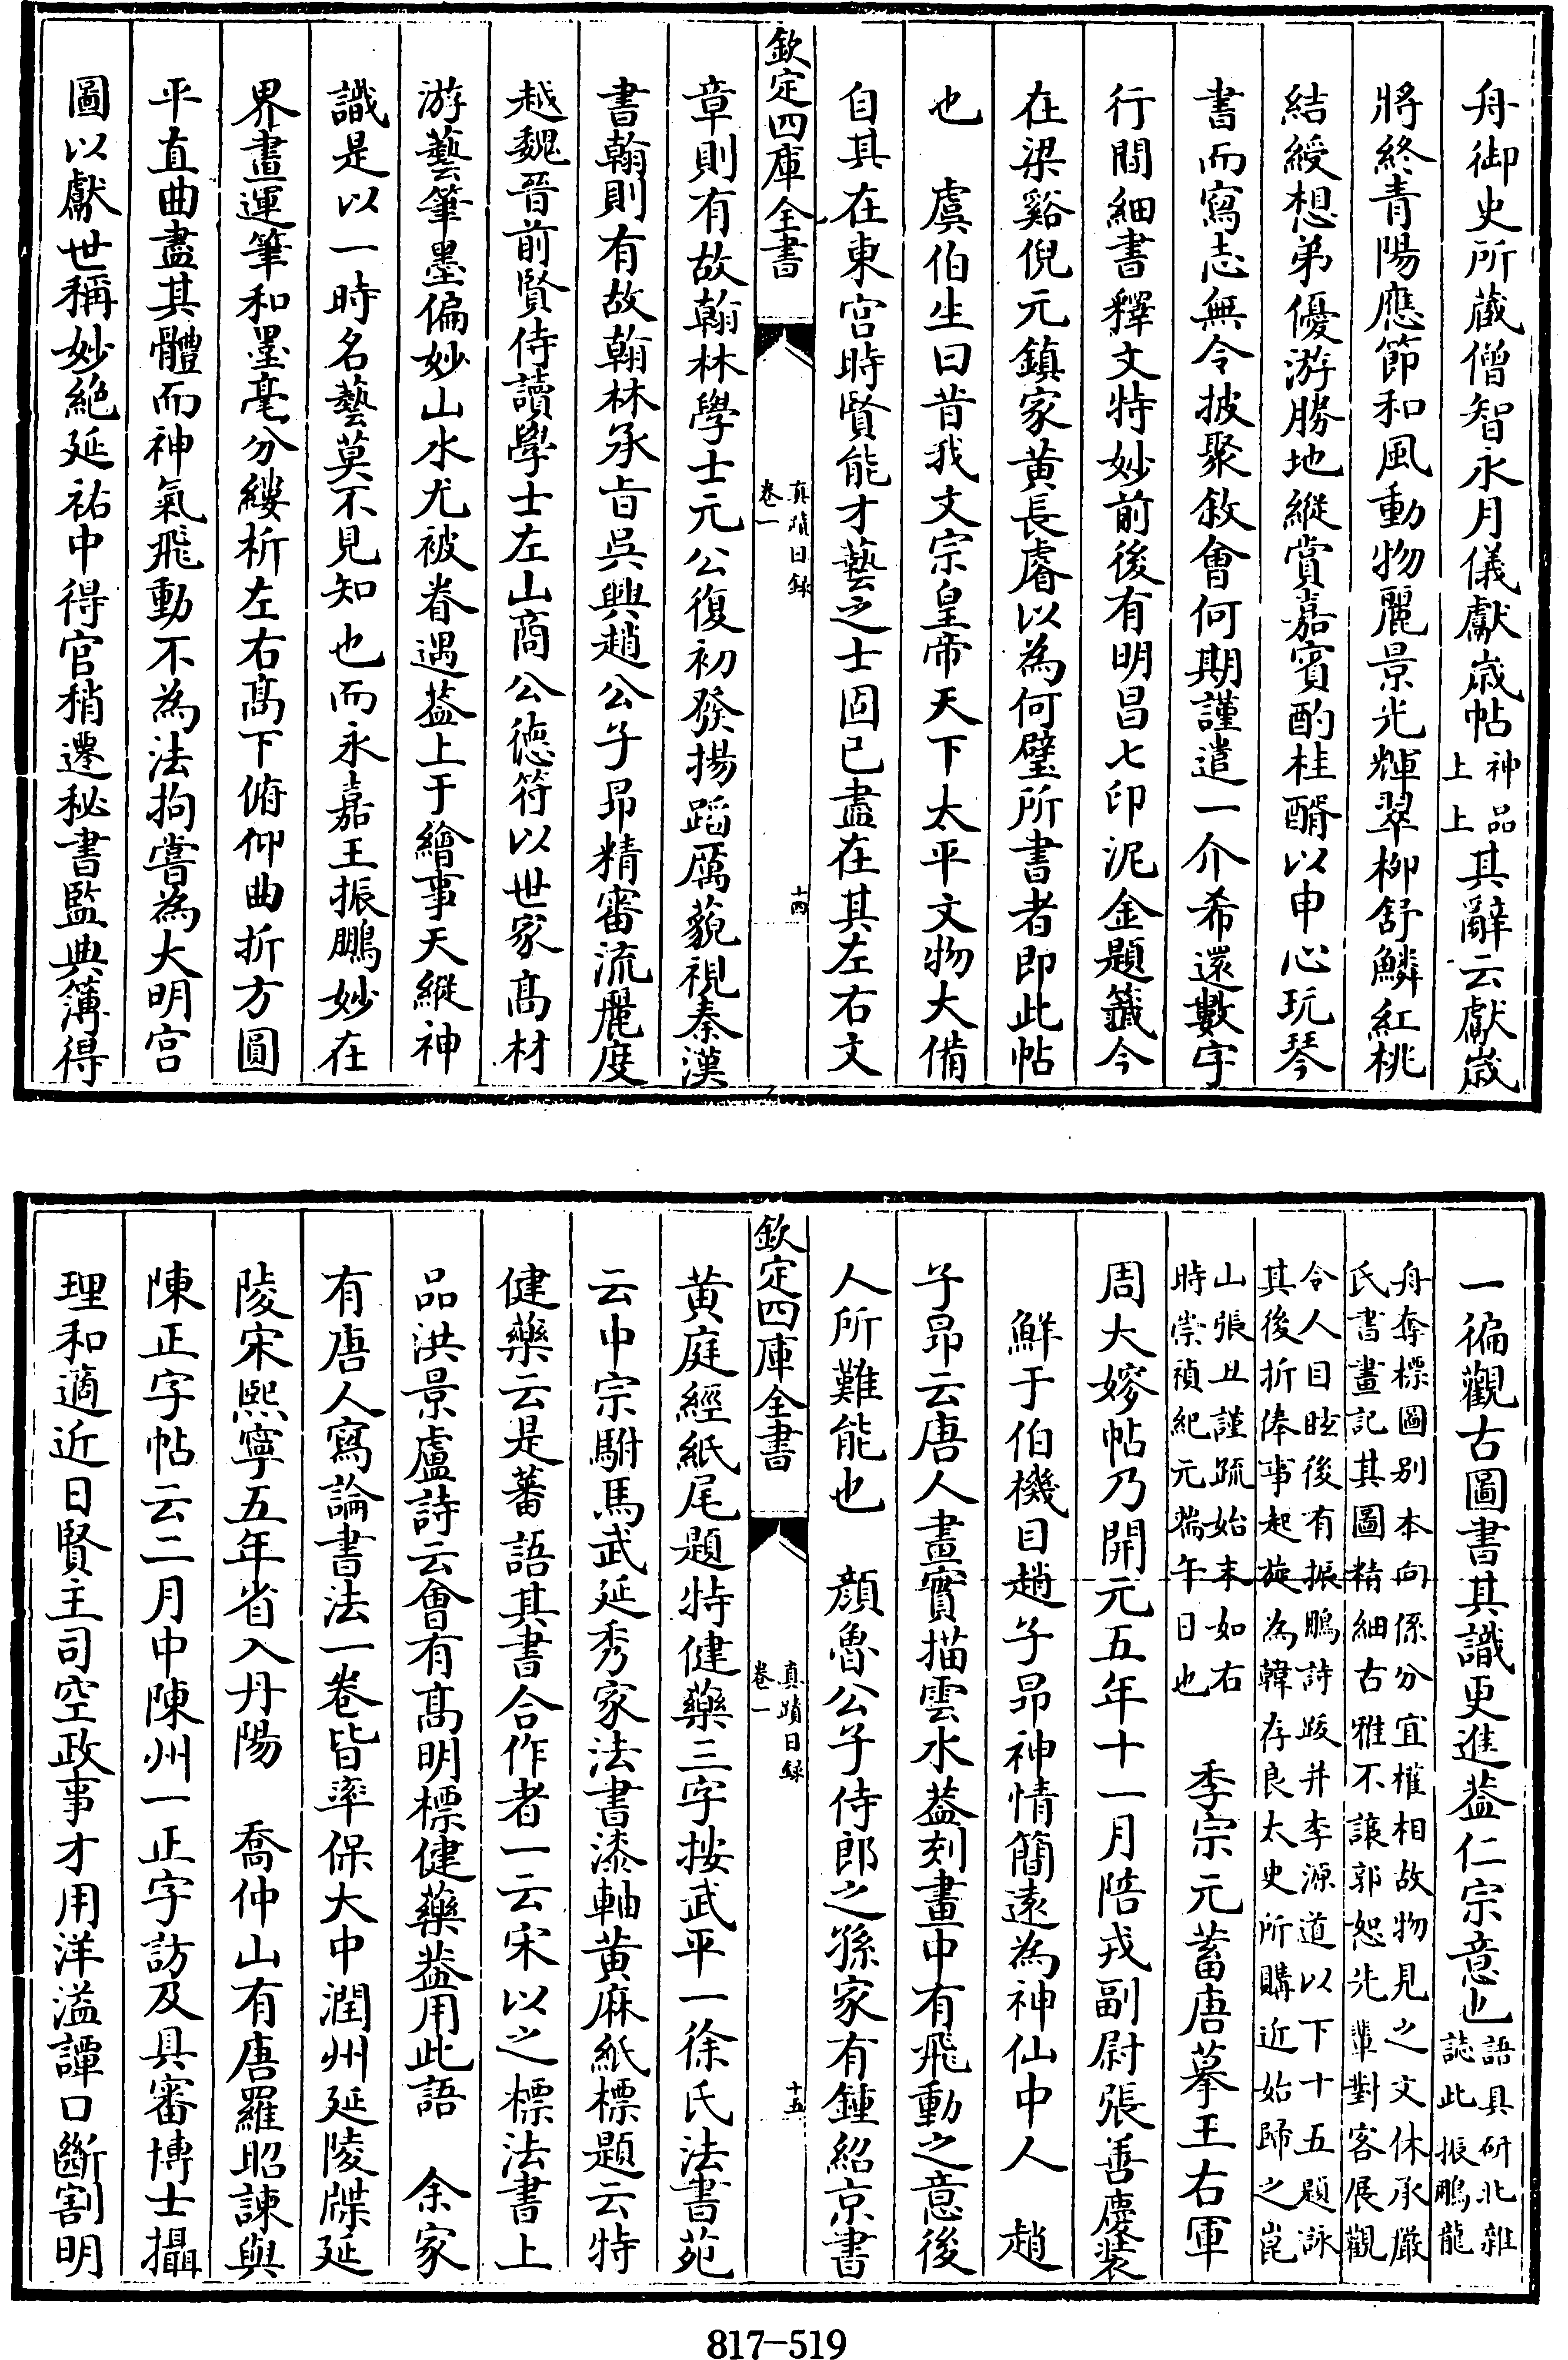 舟御史所藏僧智永月儀獻歲帖神品上上其辭云獻歲
將終青陽應節和風動物麗景光輝翠柳舒鱗紅桃
結綬想弟優游勝地縱賞嘉賓酌桂醑以申心玩琴
書而寫志無令披聚敘會何期謹遣一介希還數字
行間細書釋文特妙前後有明昌七印泥金題籤今
在梁谿倪元鎮家黃長睿以為何璧所書者即此帖
也　虞伯生曰昔我文宗皇帝天下太平文物大備
自其在東宮時賢能才藝之士固已盡在其左右文
欽定四庫全書　真蹟日録　卷一　十四
章則有故翰林學士元公復初發揚蹈厲藐視秦漢
書翰則有故翰林承旨吳興趙公子昂精審流麗度
越魏晉前賢侍讀學士左山商公德符以世家高材
游藝筆墨偏妙山水尤被眷遇葢上于繪事天縱神
識是以一時名藝莫不見知也而永嘉王振鵬妙在
界畫運筆和墨毫分縷析左右高下俯仰曲折方圓
平直曲盡其體而神氣飛動不為法拘嘗為大明宫
圖以獻世稱妙絕延祐中得官稍遷秘書監典簿得
一徧觀古圖書其識更進葢仁宗意也語具研北雜誌此振鵬龍
舟奪標圖别本向係分宜權相故物見之文休承嚴
氏書畫記其圖精細古雅不讓郭恕先輩對客展觀
令人目眩後有振鵬詩跋并李源道以下十五題詠
其後折俸事起旋為韓存良太史所購近始歸之崑
山張丑謹疏始末如右
時崇禎紀元端午日也　季宗元蓄唐摹王右軍
周大嫪帖乃開元五年十一月陪戎副尉張善慶裝
鮮于伯機目趙子昂神情簡遠為神仙中人　趙
子昂云唐人畫實描雲水葢刻畫中有飛動之意後
人所難能也　顔魯公子侍郎之孫家有鍾紹京書
欽定四庫全書　真蹟日録　卷一　十五
黃庭經紙尾題特健藥三字按武平一徐氏法書苑
云中宗駙馬武延秀家法書漆軸黃麻紙標題云特
健藥云是蕃語其書合作者一云宋以之標法書上
品洪景盧詩云會有高明標健藥葢用此語　余家
有唐人寫論書法一卷皆率保大中潤州延陵牒延
陵宋熙寧五年省入丹陽　喬仲山有唐羅昭諫與
陳正字帖云二月中陳州一正字訪及具審博士攝
理和適近日賢主司空政事才用洋溢譚口斷割明
817-519